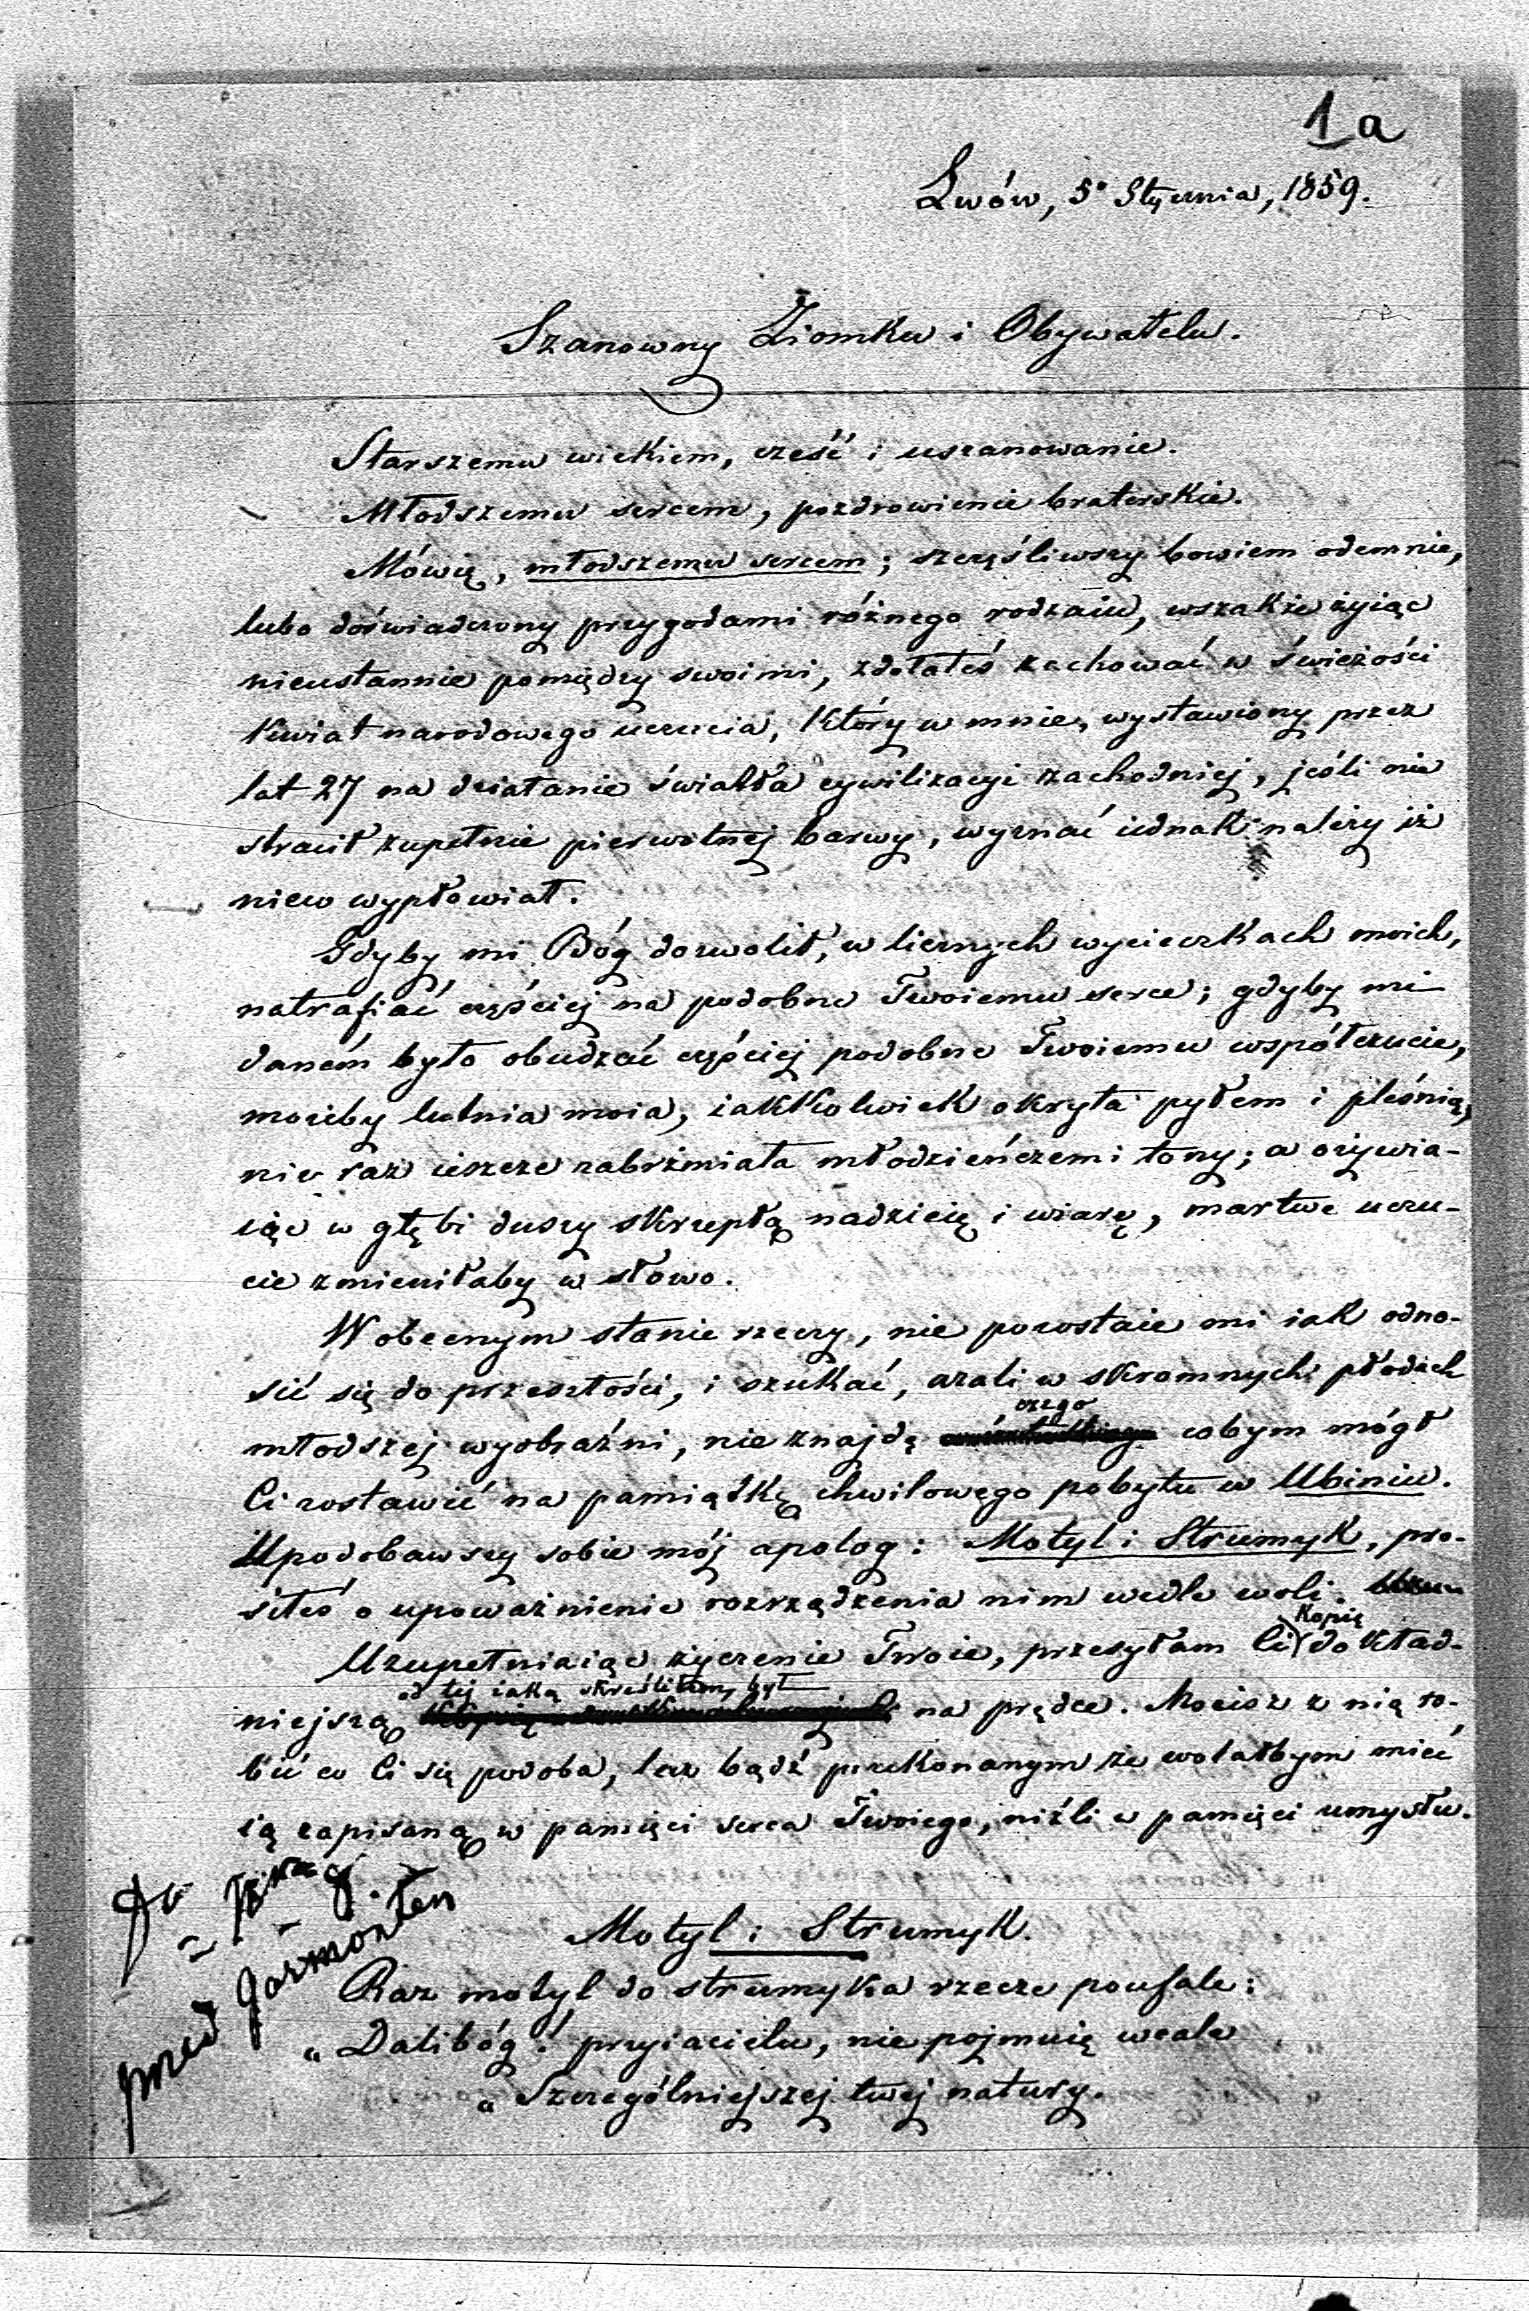 1 a
Lwów, 5° Stycznia, 1859.
Szanowny Ziomku i Obywatelu.
Starszemu wiekiem, cześć i uszanowanie.
Młodszemu sercem, pozdrowienie braterskie.
Mówię, młodszemu sercem; szczęśliwszy bowiem odemnie,
lubo doświadczony przygodami różnego rodzaiu, wszakże żyiąc
nieustannie pomiędzy swoimi, zdołałeś zachować w świeżości
kwiat narodowego uczucia, który w mnie, wystawiony przez
lat 27 na działanie światła cywilizacyi zachodniej, jeśli nie
stracił zupełnie pierwotnej barwy, wyznać iednak należy iż
nieco wypłowiał.
Gdyby mi Bóg dozwolił, w licznych wycieczkach moich,
natrafiać częściej na podobne Twoiemu serce; gdyby mi
daném było obudzać częściej podobne Twoiemu współczucie,
możeby lutnia moia, iakkolwiek okryta pyłem i pleśnią,
nie raz ieszcze zabrźmiała młodzieńczemi tony; a ożywia-
iąc w głębi duszy skrzepłą nadzieię i wiarę, martwe uczu-
cie zmieniłaby w słowo.
W obecnym stanie rzeczy, nie pozostaie mi iak odno-
sić się do przeszłości, i szukać, azali w skromnych płodach
młodszej wyobraźni, nie znajdę czego cobym mógł
Ci zostawić na pamiątkę chwilowego pobytu w Ubiniu.
Upodobawszy sobie mój apolog: Motyl i Strumyk, pro-
siłeś o upoważnienie rozrządzenia nim wedle woli.
Uzupełniaiąc życzenie Twoie, przesyłam Ci kopię dokład-
niejszą od tej iaką skreśliłem był na prędce. Możesz z nią ro-
bić co Ci się podoba, lecz bądź przekonanym że wolałbym mieć
ią zapisaną w pamięci serca Twoiego, niźli w pamięci umysłu.
przed Garmonten
Motyl i Strumyk.
Raz motyl do strumyka rzecze poufale:
„Dalibóg! przyiacielu, nie pojmuię wcale
„Szczególniejszej twej natury.